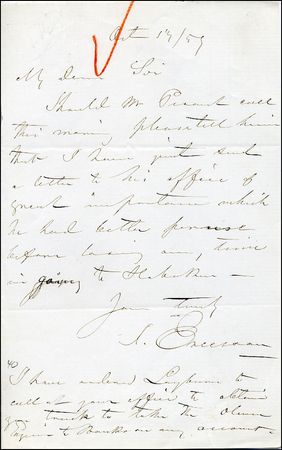 Oct 19/59
My dear Sir
Should Mr call
this morning please tell him
that I have just sent
a letter to his office of
great importance which
he had better peruse
before losing any time
in going to Hoboken —
Yours truly
J. Ericsson
I have ordered to
call at your office to obtain
truck to take the
again to on any account.